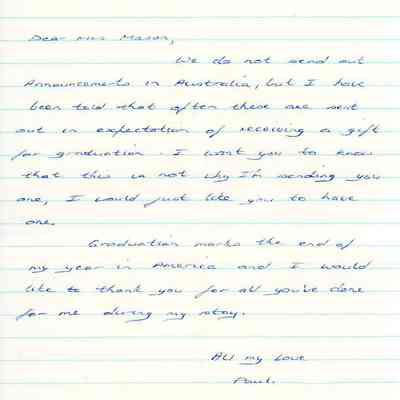 Dear Mrs Mason,
We do not send out
Announcements in Australia, but I have
been told that often these are sent
out in expectation of receiving a gift
for graduation. I want you to know
that this is not why I'm sending you
one, I would just like you to have
one.
Graduation marks the end of
my year in America and I would
like to thank you for all you've done
for me during my stay.
All my love
Paul.